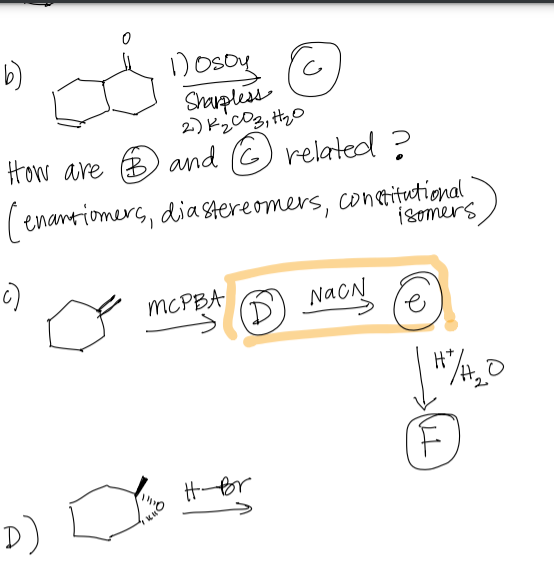 b)
O
1) OsO4
Sharpless
2) K2CO3, H2O
C
How are B and C related?
(enantiomers, diastereomers, constitutional isomers)
c)
MCPBA
D
NaCN
e
H+/H2O
F
D)
O
H
H-Br